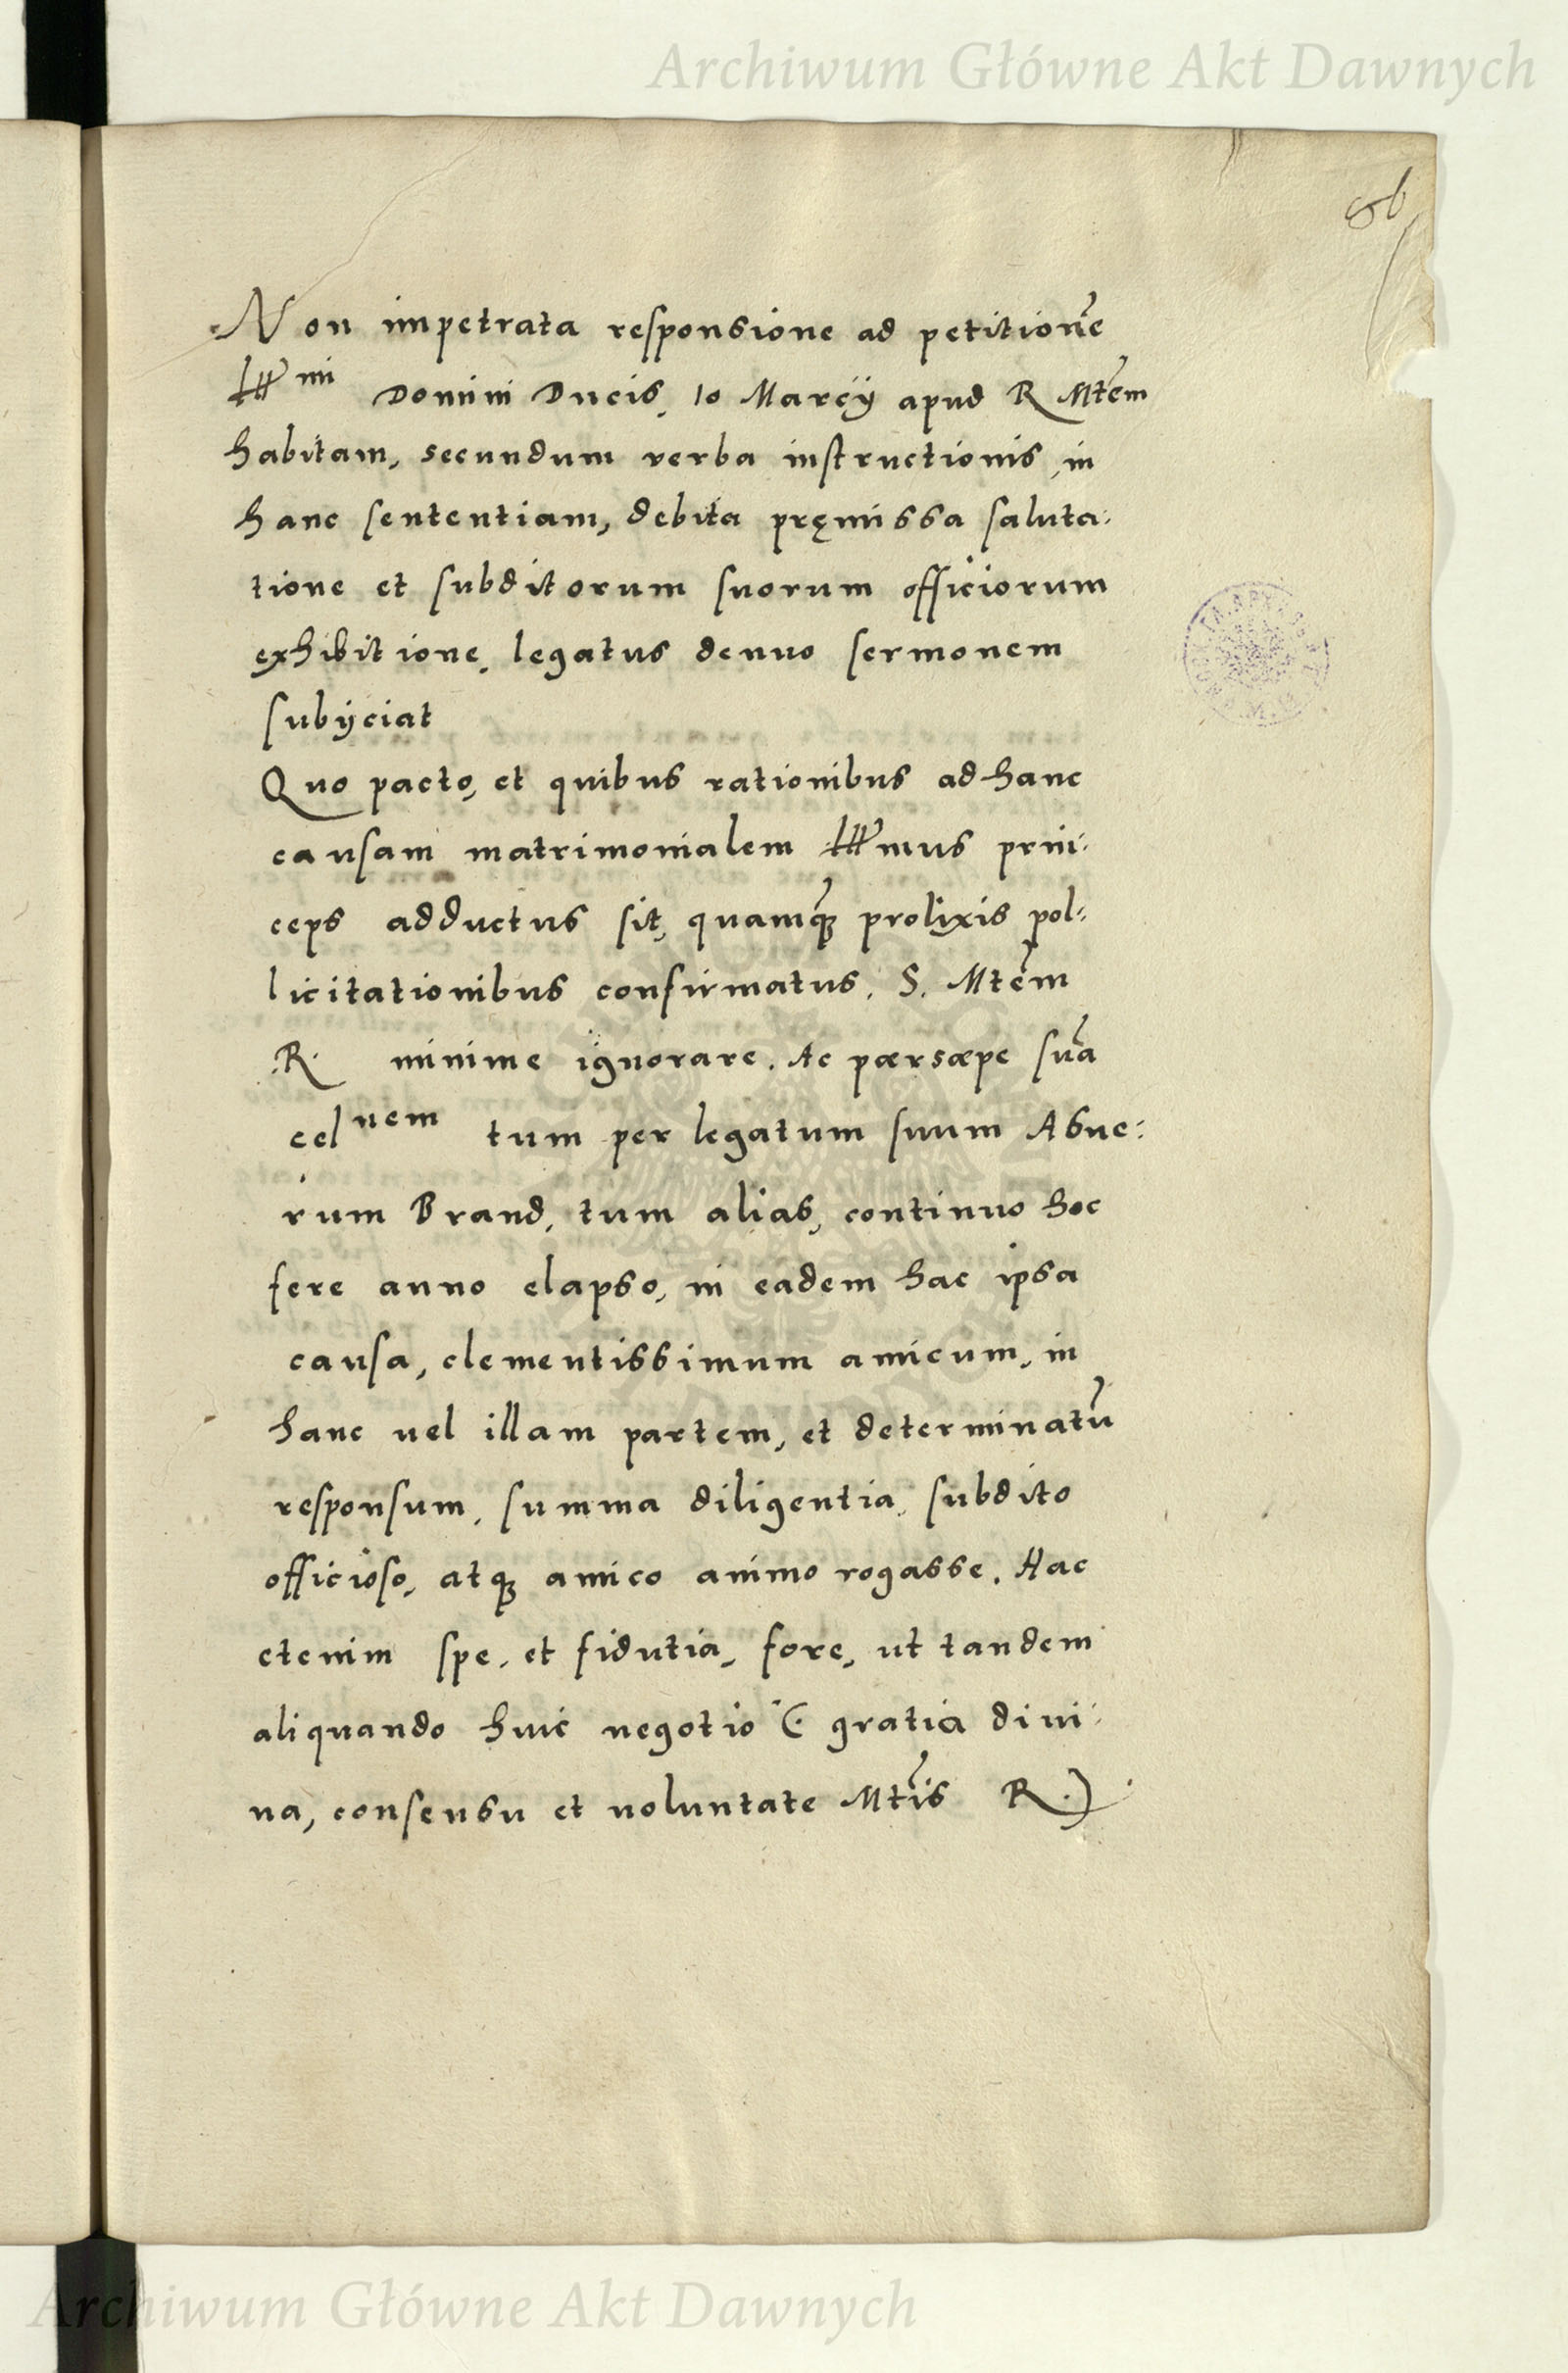 Archiwum Główne Akt Dawnych
86
Non impetrata responsione ad petitionẽ
Illmi Domini Ducis, 10 Marcij apud R Mtem
habitam, secundum verba instructionis, in
hanc sententiam, debita pręmissa saluta:
tione et subditorum suorum officiorum
exhibitione, legatus denuo sermonem
subijciat
Quo pacto, et quibus rationibus ad hanc
causam matrimonialem Illmus prin:
ceps adductus sit, quamq́ꝫ prolixis pol:
licitationibus confirmatus. S. Mtem
R. minime ignorare. Ac pærsæpe suã
celnem tum per legatum suum Asue:
rum Brand, tum alias, continuo hoc
fere anno elapso, in eadem hac ipsa
causa, clementissimum amicum, in
hanc uel illam partem, et determinatũ
responsum, summa diligentia, subdito
officioso, atqꝫ amico animo rogasse. Hac
etenim spe, et fidutia, fore, ut tandem
aliquando huic negotio (: gratia diui:
na, consensu et uoluntate Mtis R.)
Archiwum Główne Akt Dawnych